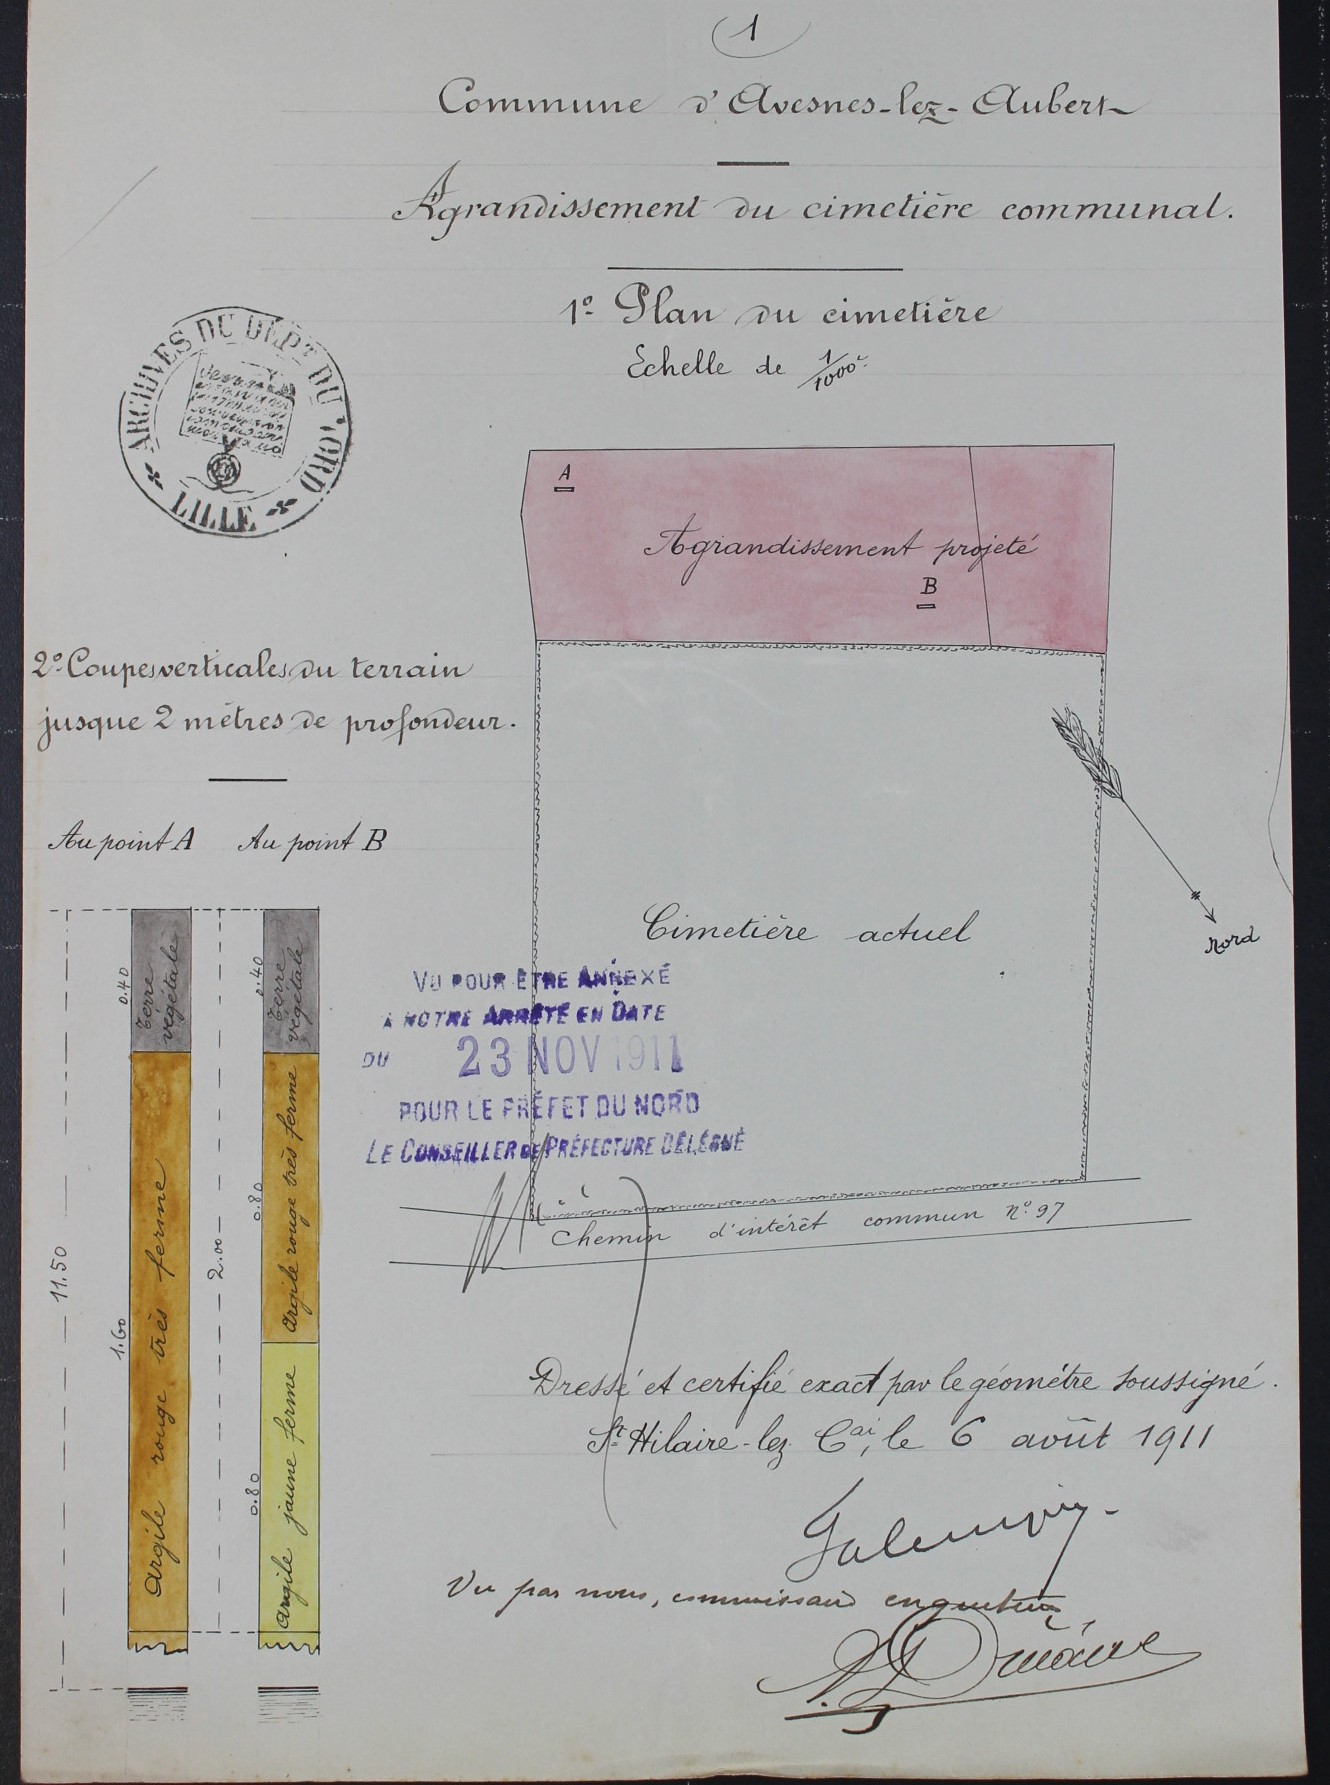 1
Commune d'Avesnes-lez-Aubert
Agrandissement du cimetière communal.
1º Plan du cimetière
Echelle de 1/1000e
ARCHIVES DU DÉPT DU NORD
LILLE
A
Agrandissement projeté
B
2º Coupes verticales du terrain
jusque 2 mètres de profondeur.
Au point A
Au point B
Nord
Cimetière actuel
VU POUR ÊTRE ANNEXÉ
A NOTRE ARRÊTÉ EN DATE
DU 23 NOV 1911
POUR LE PRÉFET DU NORD
LE CONSEILLER DE PRÉFECTURE DÉLÉGUÉ
Chemin d'intérêt commun nº 97
0.40
Terre
végétale
1.60
Argile rouge très ferme
11.50
2.00
0.40
Terre
végétale
0.80
Argile rouge très ferme
0.80
Argile jaune ferme
Dressé et certifié exact par le géomètre soussigné.
St Hilaire-lez-Cai, le 6 août 1911
Vu par nous, commissaire enquêteur